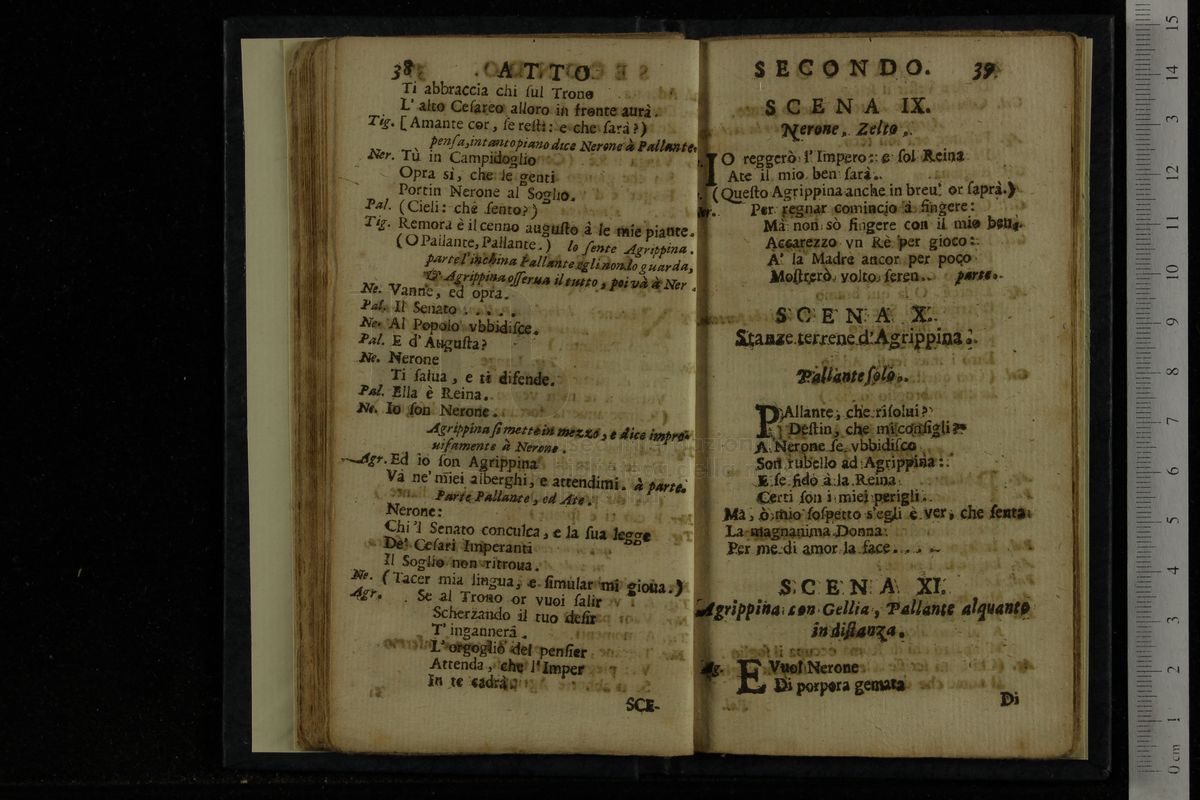 38 ATTO
Ti abbraccia chi ſul Trono
L' alto Ceſareo alloro in fronte aurà.
Tig. [Amante cor, ſe reſti: e che ſarà?)
penſa, intanto piano dice Nerone à Pallante.
Ner. Tù in Campidoglio
Opra sì, che le genti
Portin Nerone al Soglio.
Pal. (Cieli: chè ſento?)
Tig. Remora è il cenno auguſto à le mie piante.
(O Pallante, Pallante.) lo ſente Agrippina.
parte l'inchina Pallante egli non lo guarda,
& Agrippina oſſerua il tutto, poi và à Ner.
Ne. Vanne, ed opra.
Pal. Il Senato . . . . .
Ne. Al Popolo vbbidiſce.
Pal. E d'Auguſta?
Ne. Nerone
Ti ſalua, e ti difende.
Pal. Ella è Reina.
Ne. Io ſon Nerone.
Agrippina ſi mette in mezzo, e dice impro-
uiſamente à Nerone.
Agr. Ed io ſon Agrippina
Và ne' miei alberghi, e attendimi. à parte.
Parte Pallante, ed Ate.
Nerone:
Chi 'l Senato conculca, e la ſua legge
De' Ceſari Imperanti
Il Soglio non ritroua.
Ne. (Tacer mia lingua, e ſimular mi gioua.)
Agr. Se al Trono or vuoi ſalir
Scherzando il tuo deſir
T' ingannerà.
L' orgoglio del penſier
Attenda, che l'Imper
In te cadrà.
SCE-
SECONDO. 39
SCENA IX.
Nerone, Zelto.
IO reggerò l'Impero: e ſol Reina
Ate il mio ben ſarà.
(Queſto Agrippina anche in breu' or ſaprà.)
Per regnar comincio à fingere:
Mà non sò fingere con il mio ben.
Accarezzo vn Rè per gioco:
A' la Madre ancor per poco
Moſtrerò volto ſeren. parte.
SCENA X.
Stanze terrene d'Agrippina.
Pallante ſolo.
PAllante, che riſolui?
Deſtin, che mi conſigli?
A Nerone ſe vbbidiſco
Son rubello ad Agrippina:
E ſe fido à la Reina
Certi ſon i miei perigli.
Mà, ò mio ſoſpetto s'egli è ver, che ſenta
La magnanima Donna
Per me di amor la face....
SCENA XI.
Agrippina con Gellia, Pallante alquanto
in diſtanza.
Ag. E Vuol Nerone
Di porpora gemata
Di